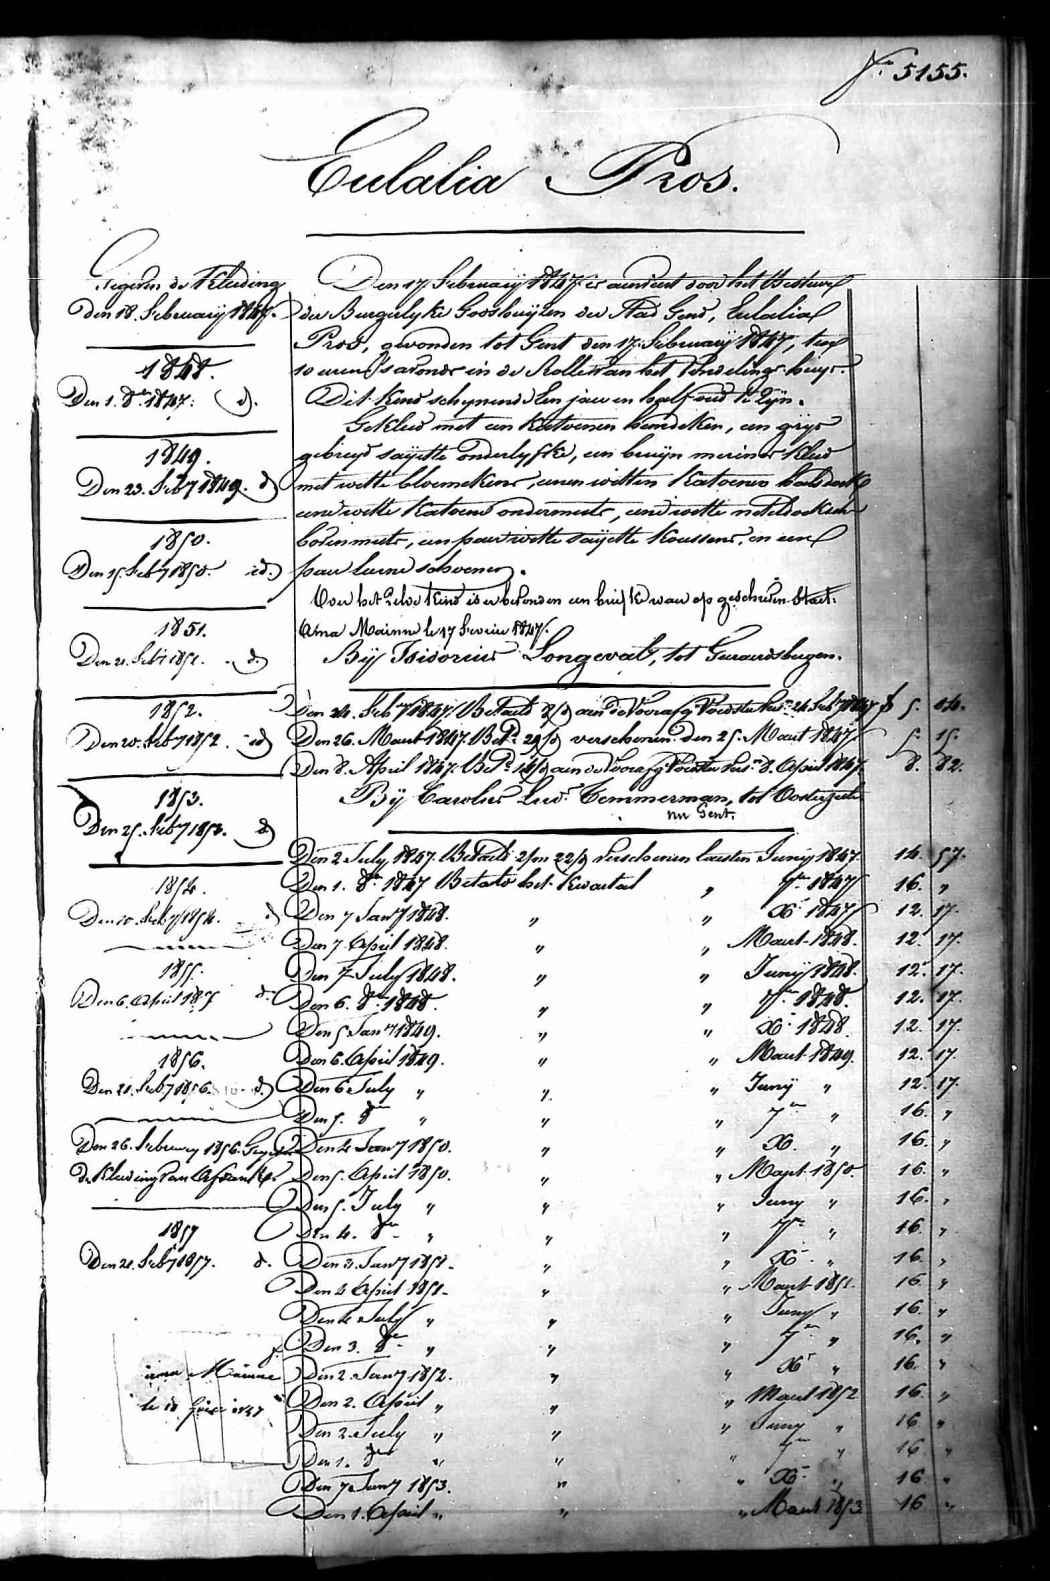 Nr. 5155.
Eulalia Pros.
Gegeven de Kleeding
Den 18. February 1847.
1848.
Den 1. 8er 1847. id.
1849.
Den 23. Feby 1849. id
1850.
Den 15. Feby 1850. id.
1851.
Den 21. Feby 1851. id.
1852.
Den 20. Feby 1852. id
1853.
Den 25. Feby 1853. id
1854.
Den 10. Feby 1854. id
1855.
Den 6. April 1857 id.
1856.
Den 21. Feby 1856. id.
Den 26. February 1856. Gegeven
de Kleeding van
1857
Den 21. Feby 1857. id.
Maine
le 18 1847
Den 17 February 1847 is aenveert door het Bestuer
der Burgerlyke Godshuyzen der Stad Gend, Eulalia
Pros, gevonden tot Gent den 17 February 1847, ten
10 uren 's avonds in de Rolle van het Vondelinge-huys.
Dit kind schynende een jaer en half oud te zyn.
Gekleed met een katoenen hemdeken, een grys
gebreyd sayette onderlyfke, een bruyn merinos kleed
met witte bloemekens, eenen witten katoenen halsdoek
eene witte katoene ondermuts, eene witte neteldoeksche
bovenmuts, een paer witte sayette koussens, en een
paer leerne schoenen.
Over het zelve kind is er bevonden een briefke waer op geschreven staet:
Maine le 17 Fevrier 1847.
Bij Isidorius Longeval, tot Geeraerdsbergen.
Den 24. Feby 1847. Betaeld aen de Voorafg. Voedster 24 Feby 1847 f 5. 14.
Den 26. Maert 1847. Bet. verschenen den 25. Maert 1847 5. 15.
Den 8. April 1847. Bet. aen de Voorafg. Voedster 8. April 1847. 8. 82.
Bij Carolus Lud. Temmerman, tot Oosterzeele
nu Gent.
Den 2 July 1847. Betaeld 2/m 22/d verschenen laesten Juny 1847. 14. 57.
Den 1. 8er 1847 Betaeld het kwartael „ 7er 1847 16. „
Den 7 Jany 1848. „ „ Xr 1847 12. 17.
Den 7 April 1848. „ „ Maert 1848. 12. 17.
Den 7 July 1848. „ „ Juny 1848. 12. 17.
Den 6. 8er 1848. „ „ 7er 1848. 12. 17.
Den 5 Jany 1849. „ „ Xr 1848. 12. 17.
Den 6. April 1849. „ „ Maert 1849. 12. 17.
Den 6 July „ „ „ Juny „ 12. 17.
Den 5. 8er „ „ „ 7er „ 16. „
Den 4 Jany 1850. „ „ X. „ 16. „
Den 5. April 1850. „ „ Maert 1850 16. „
Den 5. July „ „ „ Juny „ 16. „
Den 4. 8er „ „ „ 7er „ 16. „
Den 3. Jany 1851. „ „ Xr „ 16. „
Den 4 April 1851. „ „ Maert 1851. 16. „
Den 4 July „ „ „ Juny „ 16. „
Den 3. 8er „ „ „ 7er „ 16. „
Den 2. Jany 1852. „ „ Xr „ 16. „
Den 2. April „ „ „ Maert 1852 16. „
Den 2. July „ „ „ Juny „ 16. „
Den 1. 8er „ „ „ 7er „ 16. „
Den 7 Jany 1853. „ „ Xr „ 16. „
Den 1. April „ „ „ Maert 1853 16 „